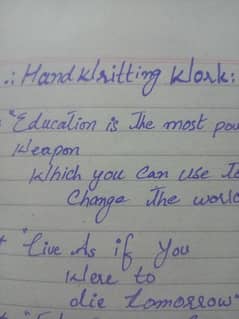 .: Handwritting Work:
"Education is The most pow
Weapon
Which you can use To
Change The world
"Live As if you
Were to
die tomorrow"